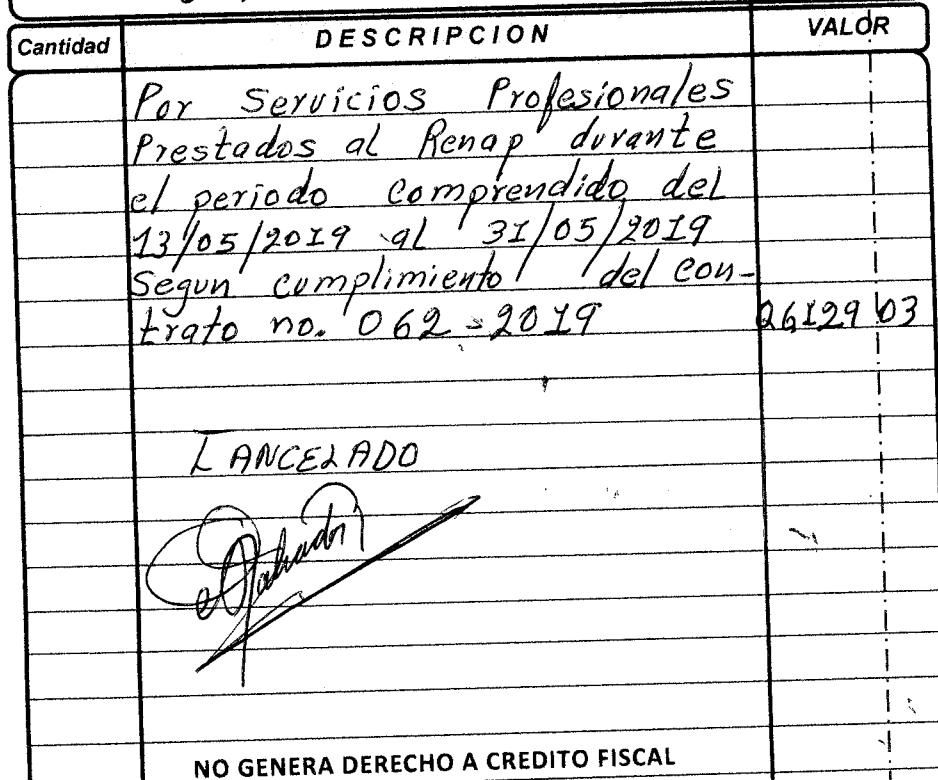 Cantidad DESCRIPCION VALOR
Por Servicios Profesionales
Prestados al Renap durante
el periodo comprendido del
13/05/2019 al 31/05/2019
Segun cumplimiento del con-
trato no. 062-2019 26129 03
CANCELADO
NO GENERA DERECHO A CREDITO FISCAL